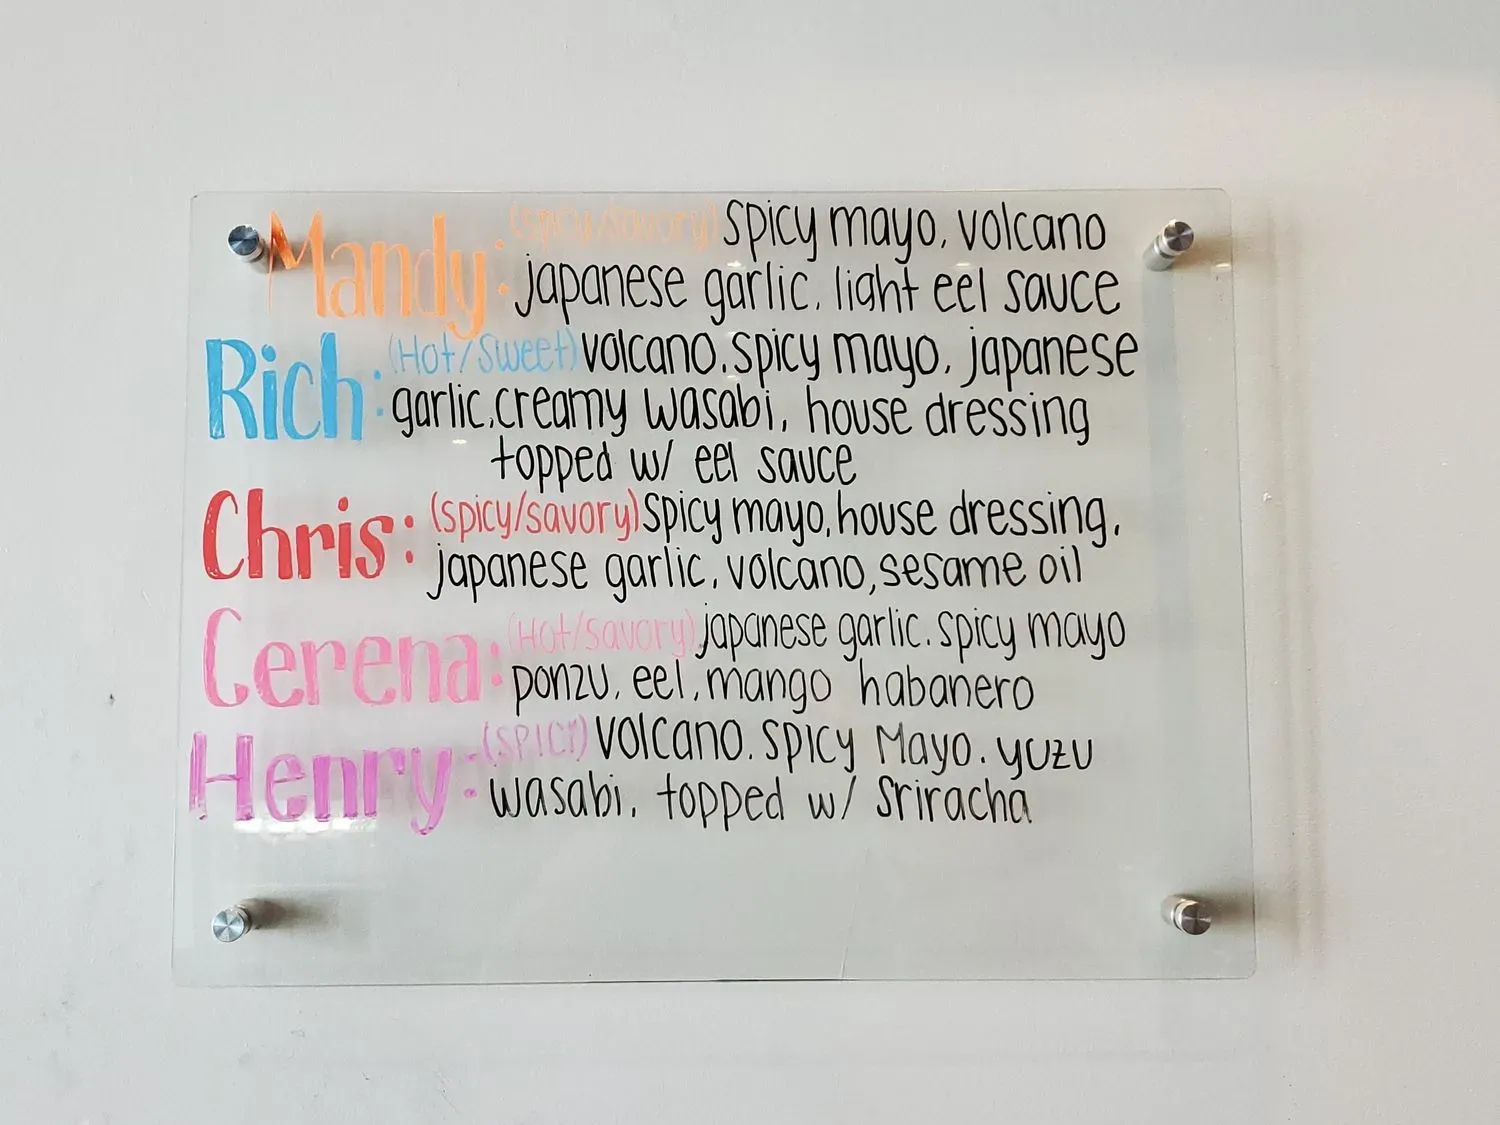 Mandy: (spicy/savory) spicy mayo, volcano
japanese garlic, light eel sauce
Rich: (Hot/Sweet) volcano, spicy mayo, japanese
garlic, creamy wasabi, house dressing
topped w/ eel sauce
Chris: (spicy/savory) spicy mayo, house dressing,
japanese garlic, volcano, sesame oil
Cerena: (Hot/savory) japanese garlic, spicy mayo
ponzu, eel, mango habanero
Henry: (SPICY) VOLCANO, SPICY MAYO, YUZU
wasabi, topped w/ Sriracha